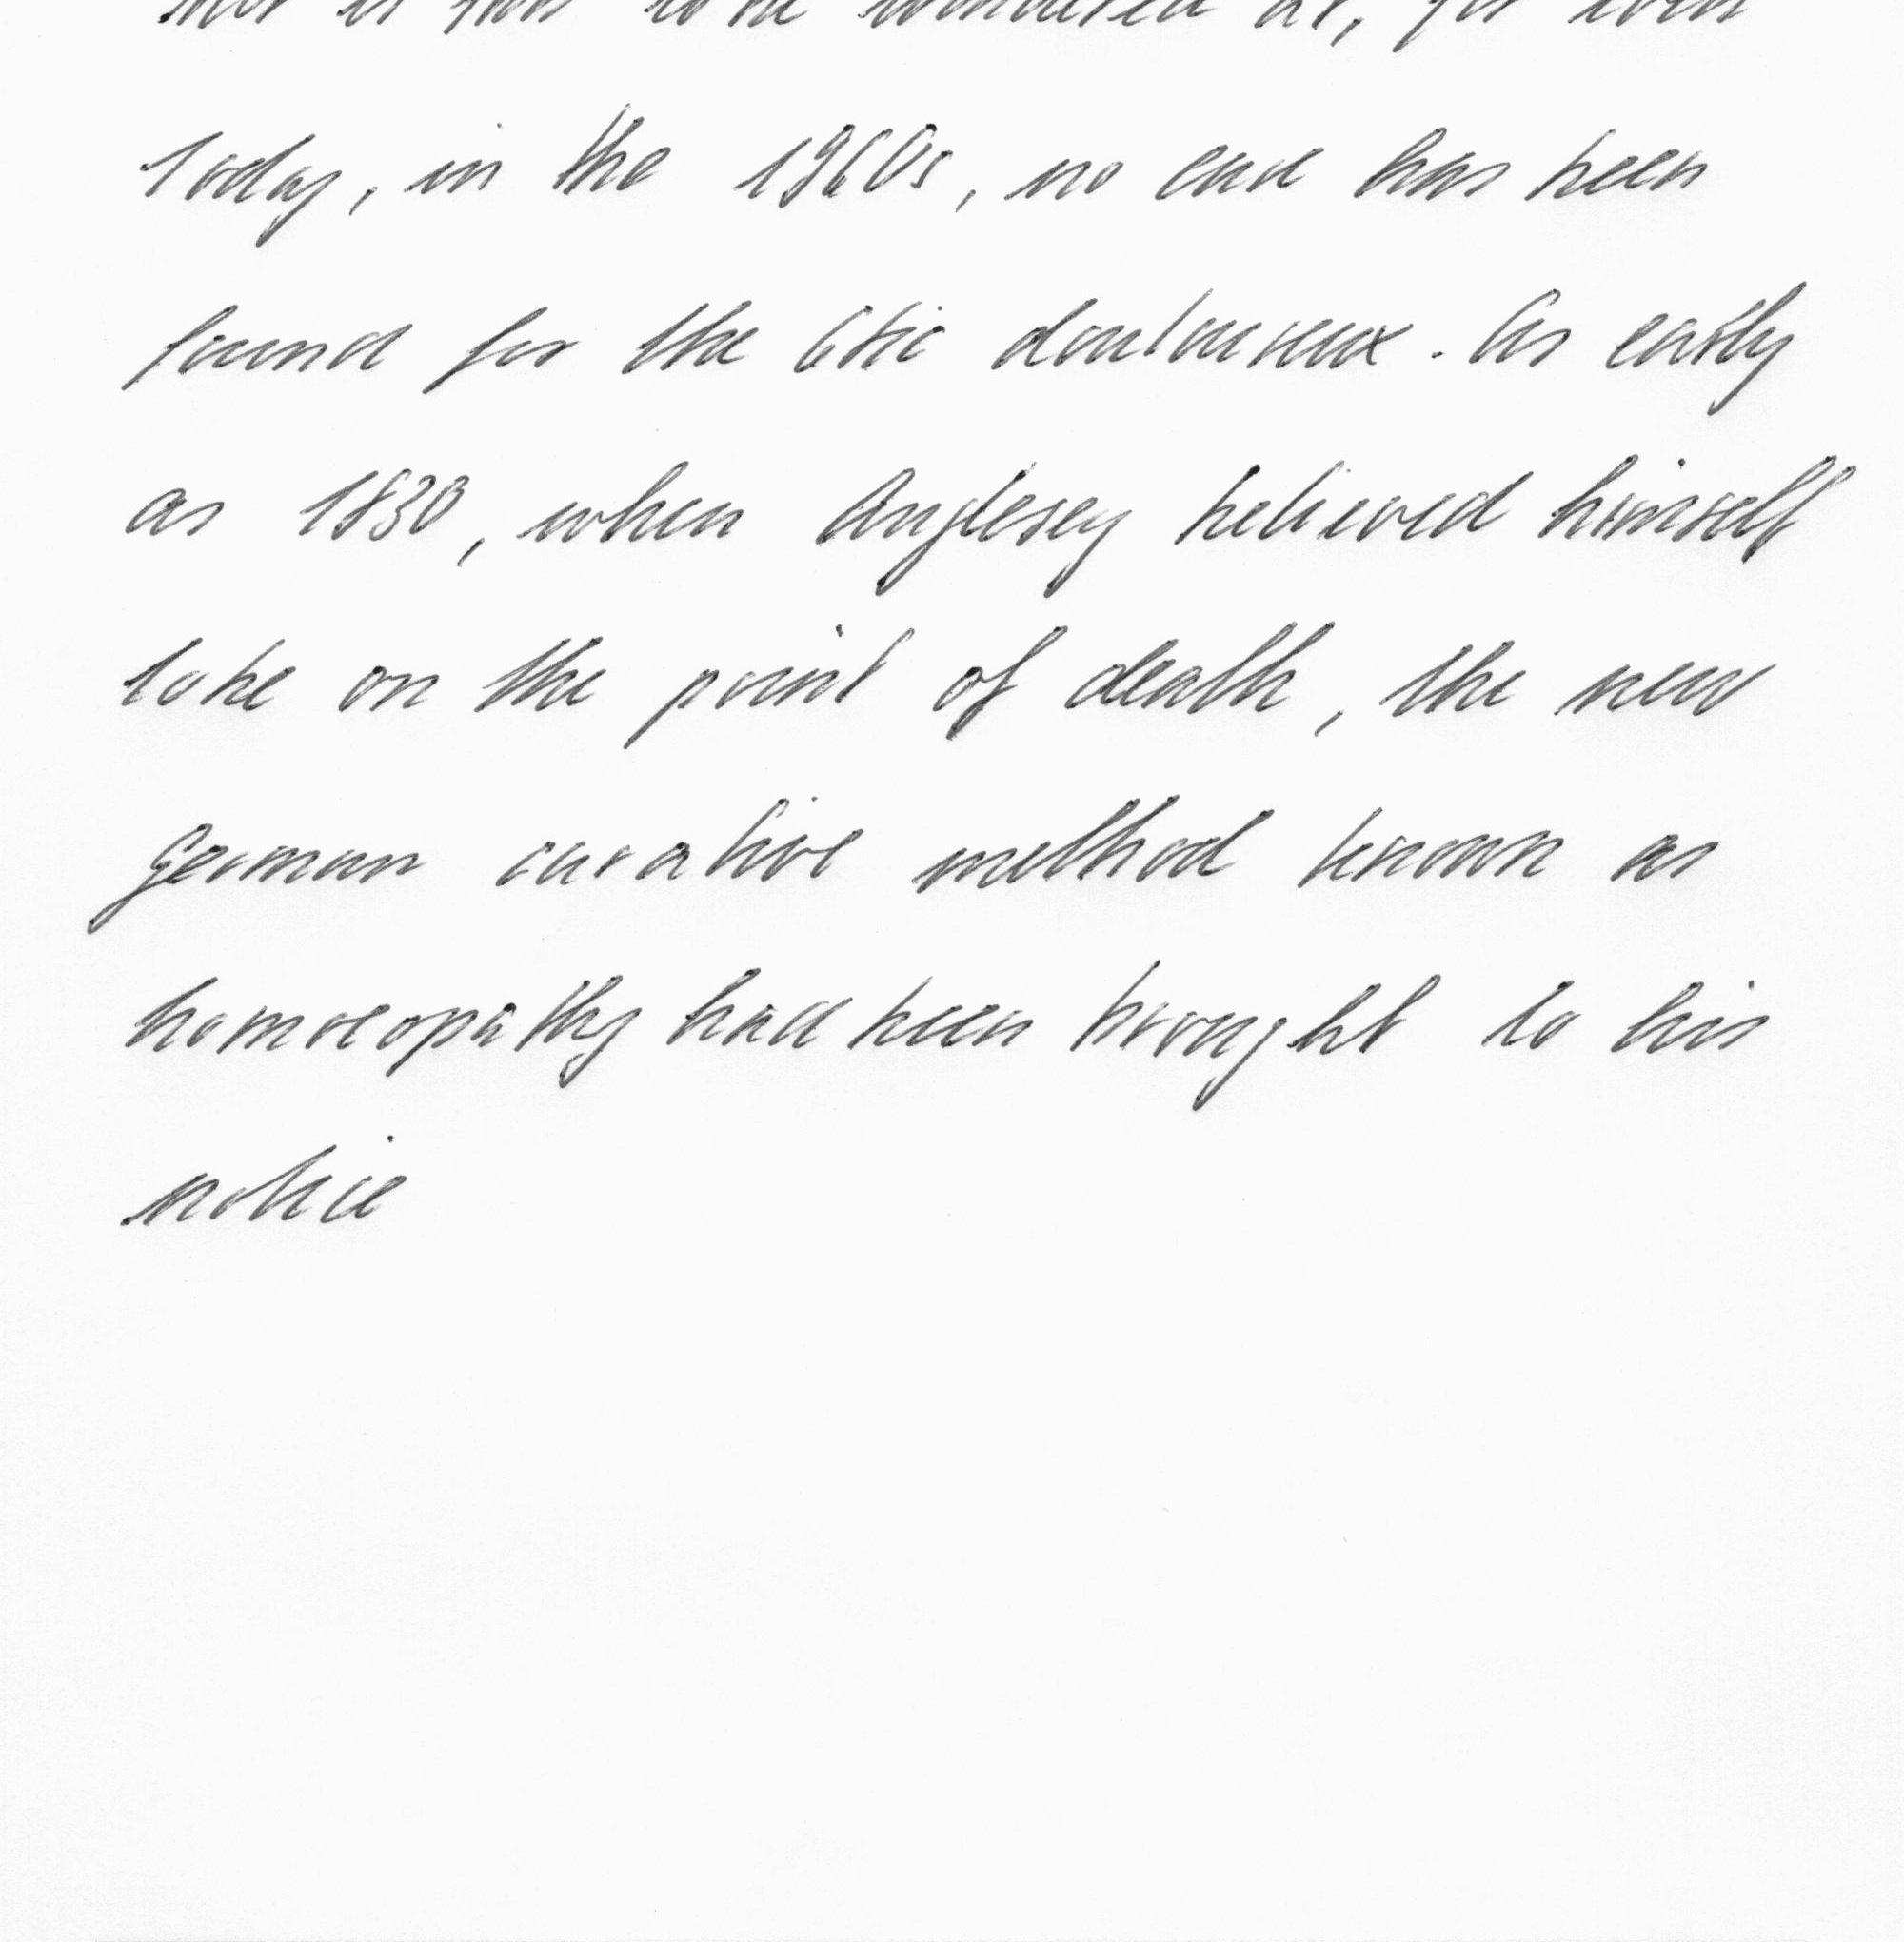 Nor is this to be wondered at, for even
today, in the 1960s, no cure has been
found for the tic douloureux. As early
as 1830, when Anglesey believed himself
to be on the point of death, the new
German curative method known as
homoeopathy had been brought to his
notice